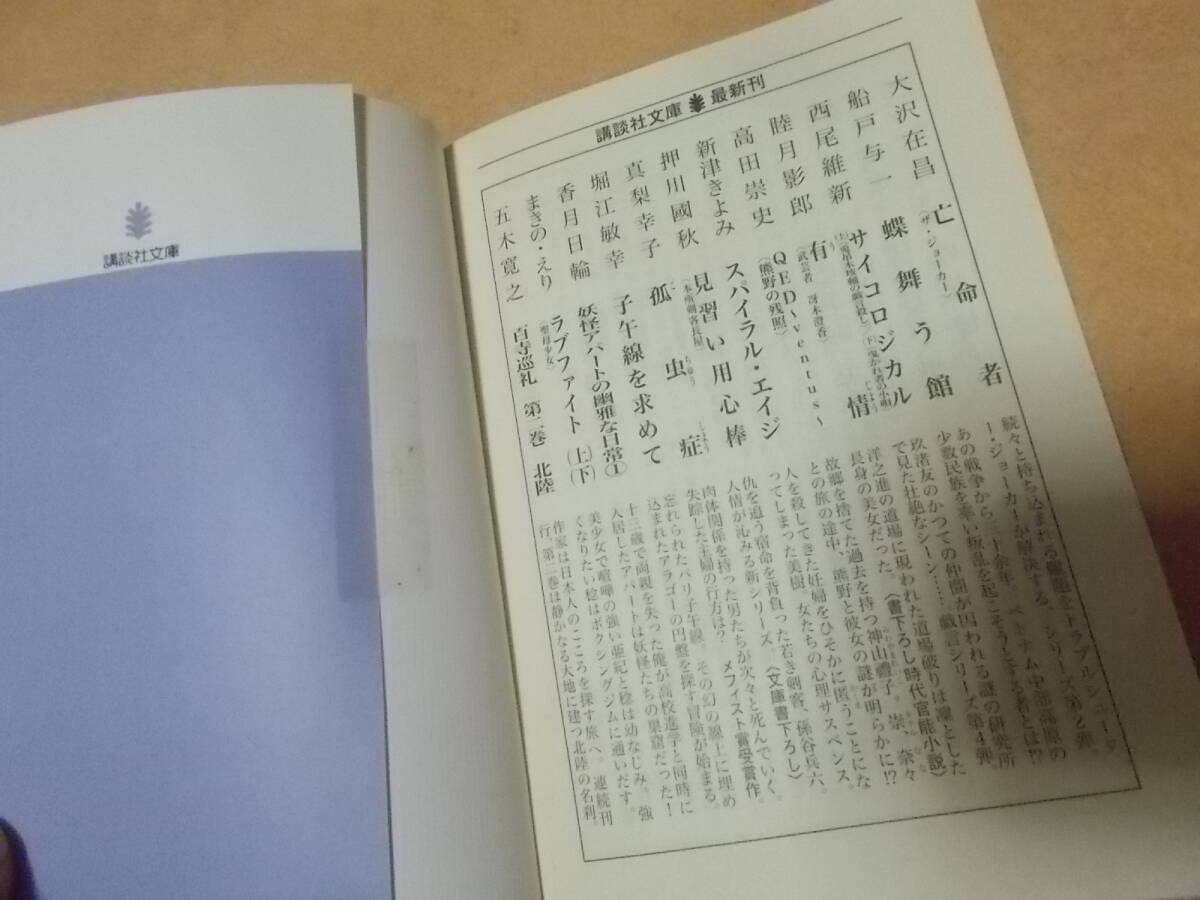 講談社文庫
講談社文庫 最新刊
大沢在昌 亡命者
〈ザ・ジョーカー〉
続々と持ち込まれる難題をトラブルシュータ
ー・ジョーカーが解決する。シリーズ第2弾。
船戸与一 蝶舞う館
あの戦争から三十余年。ベトナム中部高原の
少数民族を率い叛乱を起こそうとする者とは!?
西尾維新 サイコロジカル
〈(上)兎吊木垓輔の戯言殺し〉〈(下)曳かれ者の小唄〉
玖渚友のかつての仲間が囚われる謎の研究所
で見た壮絶なシーン……。戯言シリーズ第4弾。
睦月影郎 有情
〈武芸者 冴木澄香〉
洋之進の道場に現われた道場破りは凛とした
長身の美女だった。〈書下ろし時代官能小説〉
高田崇史 QED〜ventus〜
〈熊野の残照〉
故郷を捨てた過去を持つ神山禮子。崇、奈々
との旅の途中、熊野と彼女の謎が明らかに!?
新津きよみ スパイラル・エイジ
人を殺してきた妊婦をひそかに匿うことにな
ってしまった美樹。女たちの心理サスペンス。
押川國秋 見習い用心棒
〈本所剣客長屋〉
仇を追う宿命を背負った若き剣客、係谷兵六。
人情が沁みる新シリーズ。〈文庫書下ろし〉
真梨幸子 孤虫症
肉体関係を持った男たちが次々と死んでいく。
失踪した主婦の行方は? メフィスト賞受賞作。
堀江敏幸 子午線を求めて
忘れられたパリ子午線。その幻の線上に埋め
込まれたアラゴーの円盤を探す冒険が始まる。
香月日輪 妖怪アパートの幽雅な日常①
十三歳で両親を失った俺が高校進学と同時に
入居したアパートは妖怪たちの巣窟だった!
まきの・えり ラブファイト(上)(下)
〈聖母少女〉
美少女で喧嘩の強い亜紀と稔は幼なじみ。強
くなりたい稔はボクシングジムに通いだす。
五木寛之 百寺巡礼 第二巻 北陸
作家は日本人のこころを探す旅へ。連続刊
行、第二巻は静かなる大地に建つ北陸の名刹。